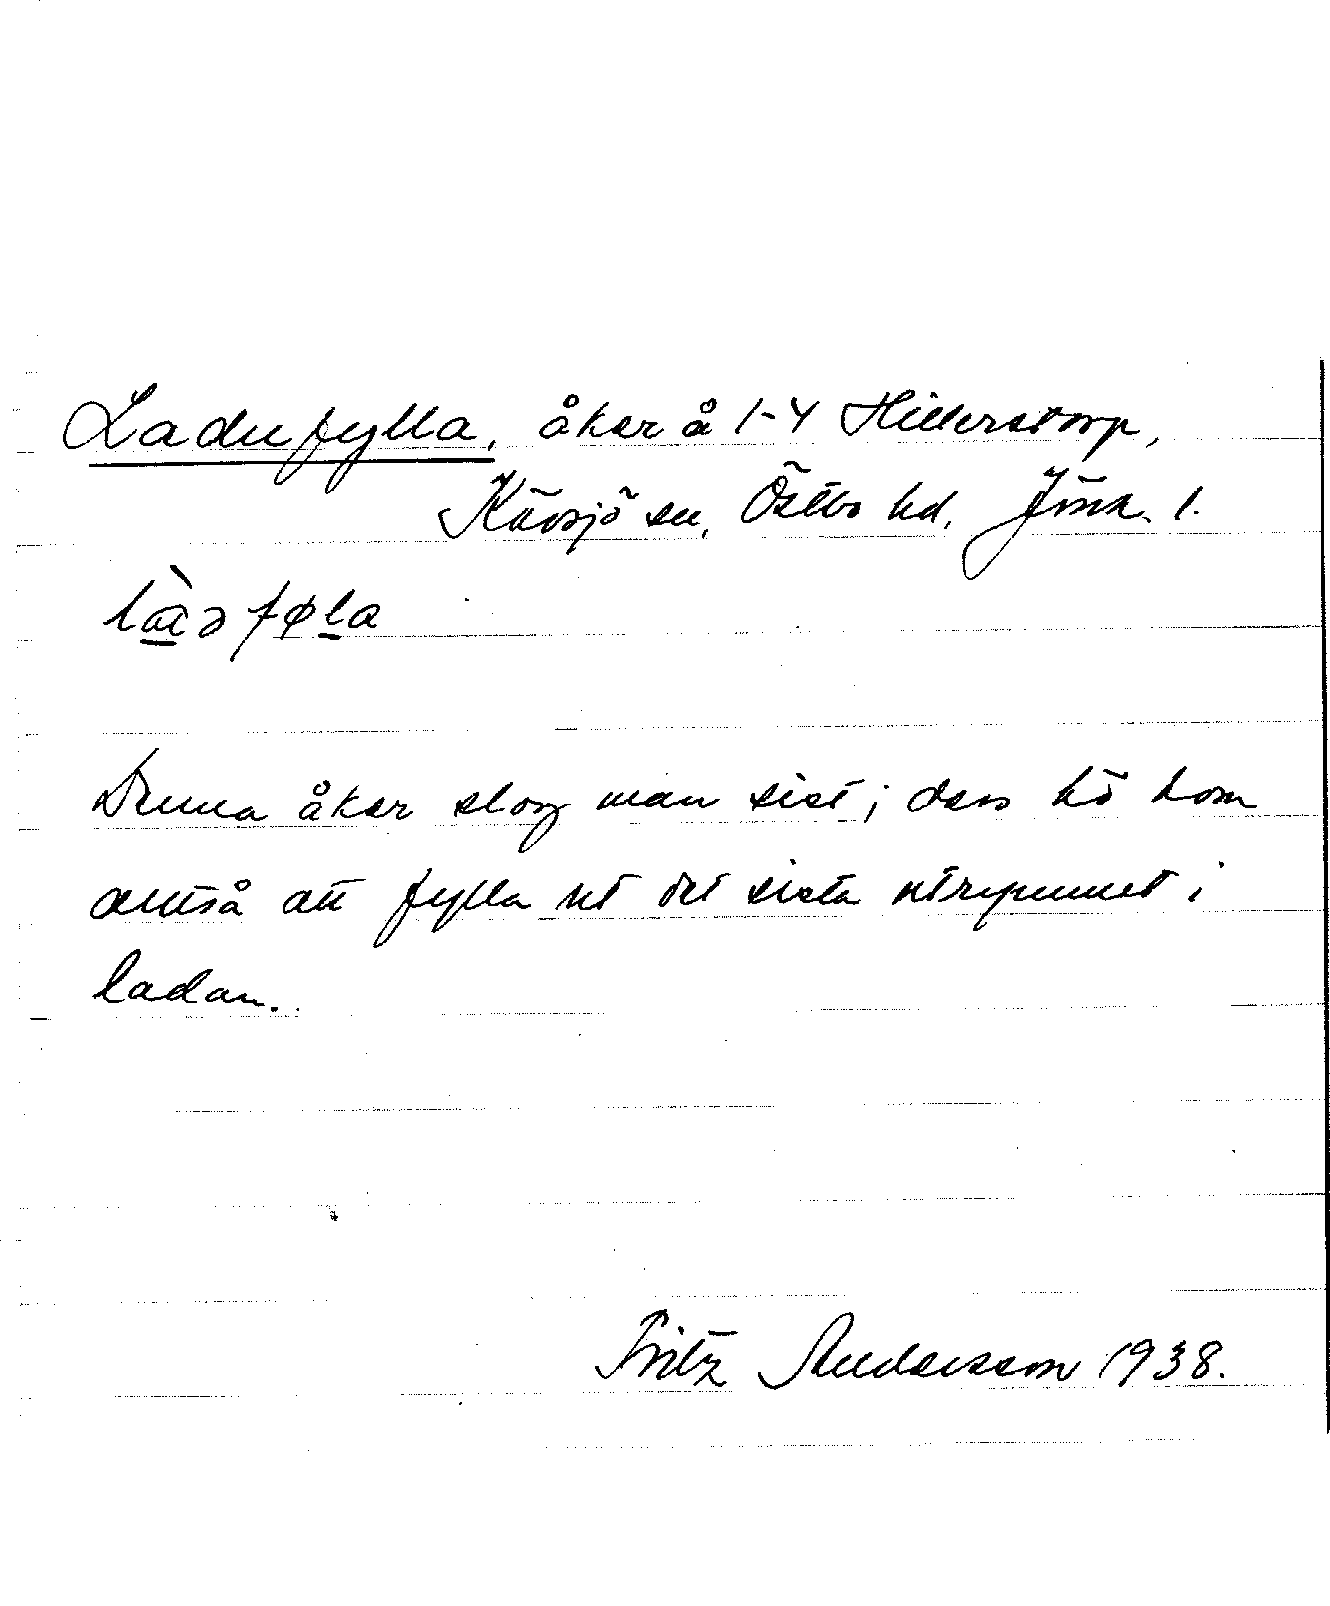 Ladufylla, åker å 1-4 Hillerstorp,
Kävsjö sn, Östbo hd, Jönk. l.
làɑ̱ə føl̲a
Denna åker slog man sist; dess hö kom
alltså att fylla ut det sista utrymmet i
ladan.
Fritz Andersson 1938.